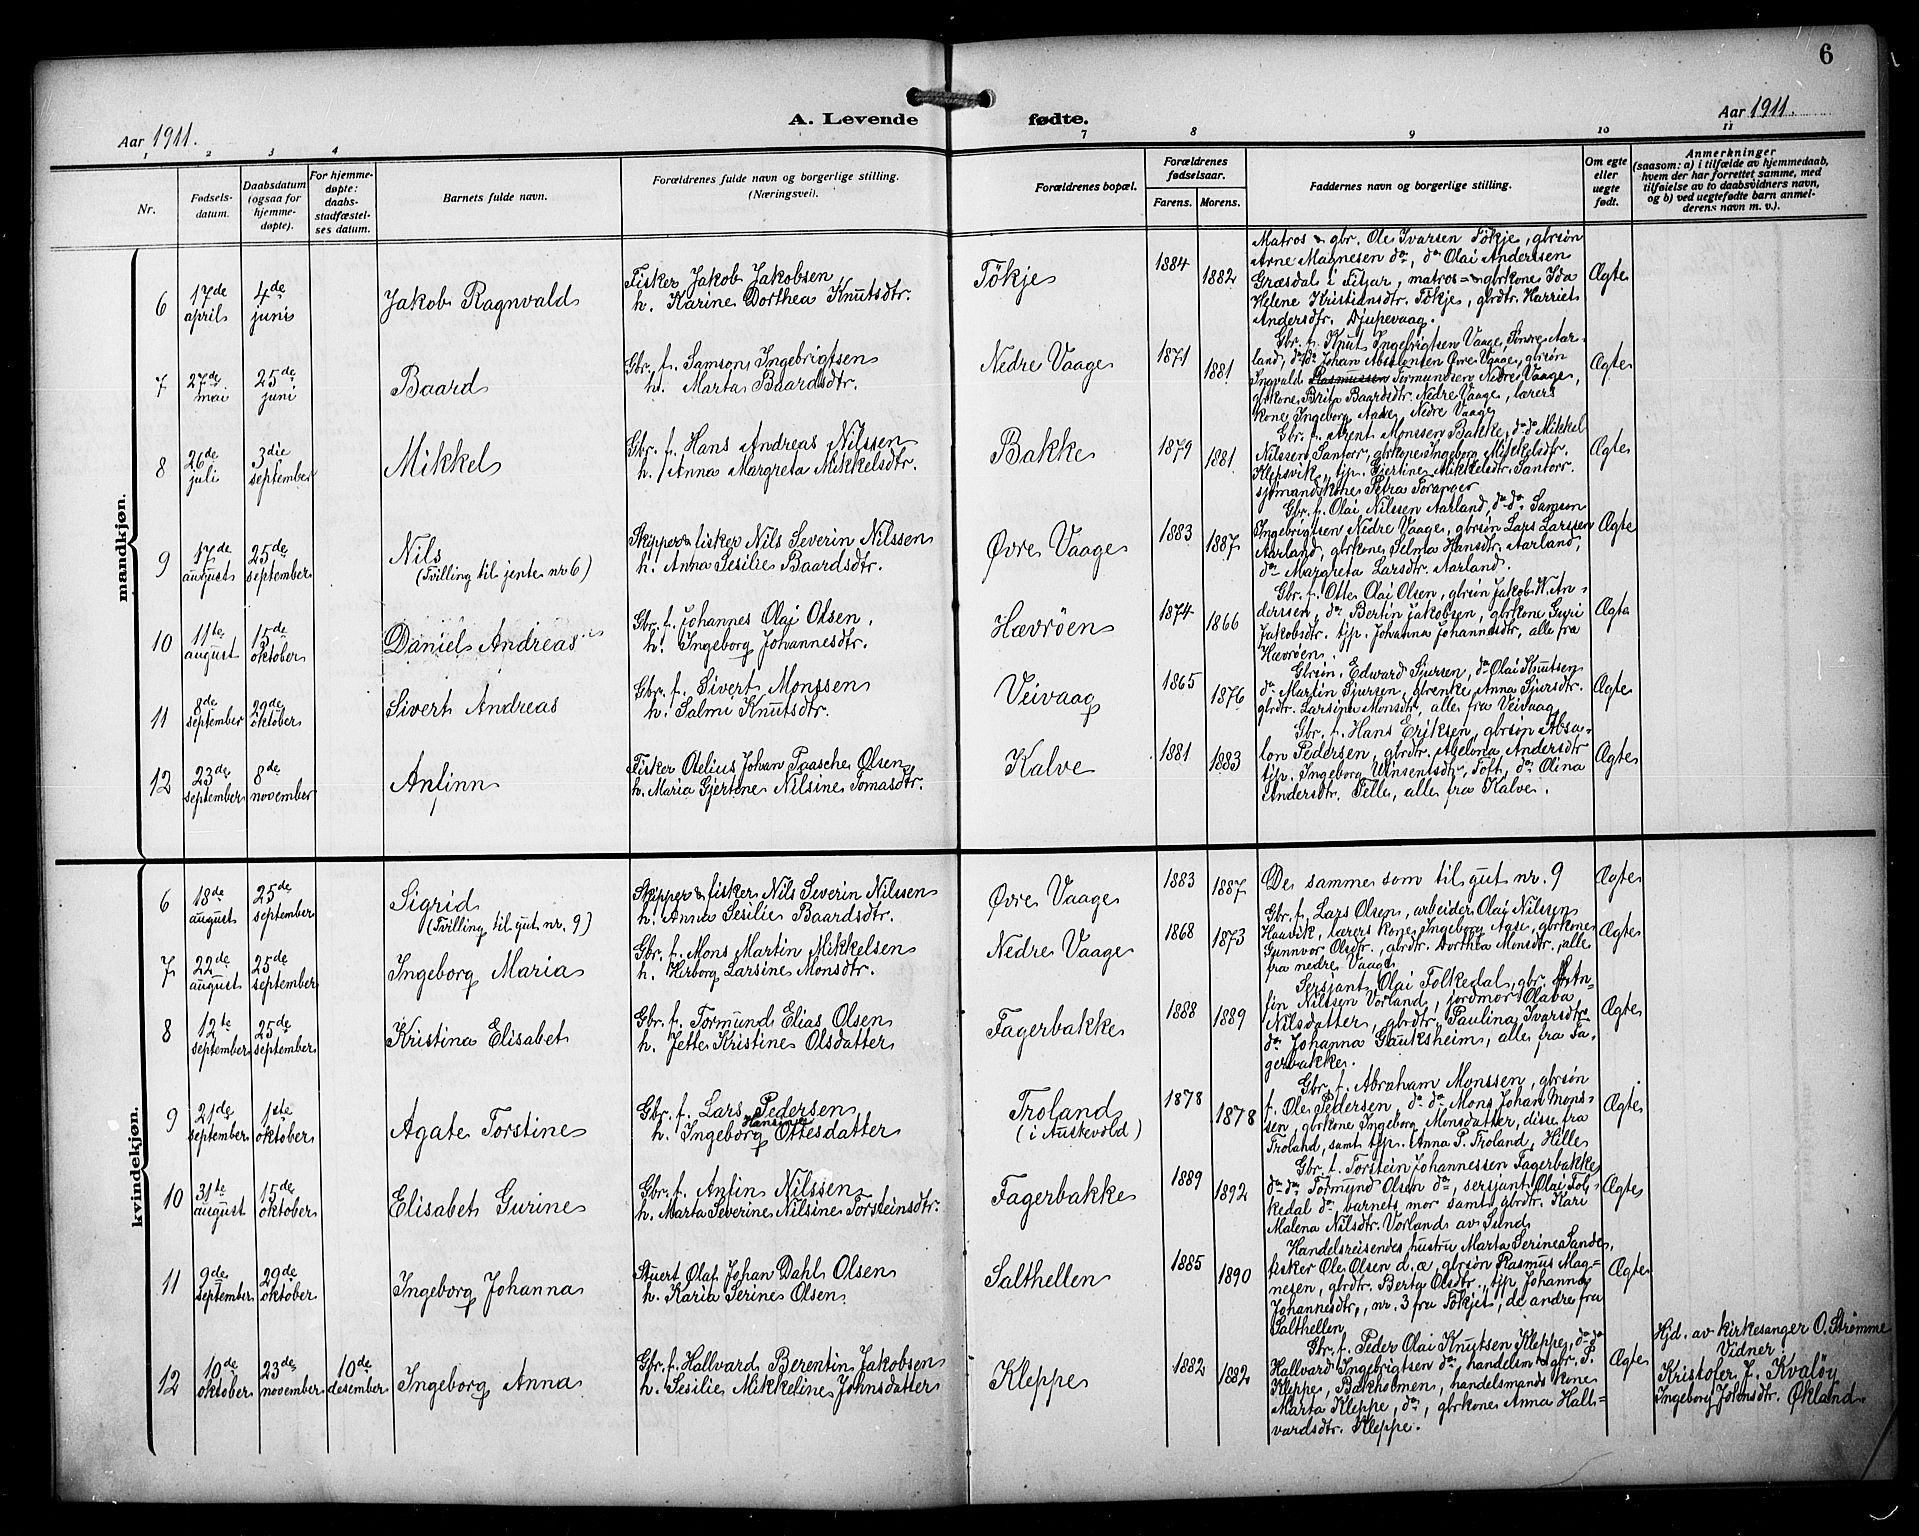 6
Aar 1911.
A. Levende fødte.
Aar 1911.
1 2 3 4 7 8 9 10 11
Nr.
Fødsels-
datum.
Daabsdatum
(ogsaa for
hjemme-
døpte).
For hjemme-
døpte:
daabs-
stadfæstel-
ses datum.
Barnets fulde navn.
Forældrenes fulde navn og borgerlige stilling.
(Næringsvei).
Forældrenes bopæl.
Forældrenes
fødselsaar.
Farens. Morens.
Faddernes navn og borgerlige stilling.
Om egte
eller
uegte
født.
Anmerkninger
(saasom: a) i tilfælde av hjemmedaab,
hvem der har forrettet samme, med
tilføielse av to daabsvidners navn,
og b) ved uegtefødte barn anmel-
derens navn m. v.).
mandkjøn.
6
17de
april
4de
juni
Jakob Ragnvald
Fisker Jakob Jakobsen
h. Karine Dorthea Knutsdtr.
Tökje
1884
1882
Matros & gbr. Ole Ivarsen Tökje, gbrsön
Arne Magnesen do, do Olai Andersen
Græsdal i Fitjar, matros- og gbrkone Ida
Helene Kristiansdtr. Tökje, gbrdtr. Harriet
Andersdtr. Djupevaag.
Ægte
7
27de
mai
25de
juni
Baard
Gbr. f. Samson Ingebrigtsen
h. Marta Baardsdtr.
Nedre Vaage
1871
1881
Gbr. f. Knut Ingebrigtsen Vaage, Söndre Aar-
land, do do Johan Absalonsen Øvre Vaage, gbrsön
Ingvald Rasmussen Tormundsen Nedre Vaage,
gbrkone Brita Baardsdtr. Nedre Vaage, lærers
kone Ingeborg Aase, Nedre Vaage
Ægte
8
26de
juli
3die
september
Mikkel
Gbr. f. Hans Andreas Nilssen
h. Anna Margreta Mikkelsdtr.
Bakke
1879
1881
Gbr. f. Arent Monssen Bakke, do do Mikkel
Nilssen Santorr, gbrkone Ingeborg Mikkelsdtr.
Klepsvik, tjp. Gjertine Mikkelsdtr. Santorr
sjömandskone Petra Toranger
Ægte
9
17de
august
25de
september
Nils
(Tvilling til jente nr 6)
Skipper & fisker Nils Severin Nilssen
h. Anna Sesilie Baardsdtr.
Øvre Vaage
1883
1887
Gbr. f. Olai Nilssen Aarland, do do Samson
Ingebrigtsen Nedre Vaage, gbrsön Lars Larssen
Aarland, gbrkone Selma Hansdtr. Aarland,
do Margreta Larsdtr. Aarland.
Ægte
10
11te
august
15de
oktober
Daniel Andreas
Gbr. f. Johannes Olai Olsen
h. Ingeborg Johannesdtr.
Hævröen
1874
1866
Gbr. f. Otte Olai Olsen, gbrsön Jakob W. An-
derssen, do Bertin Jakobsen, gbrkone Guri
Jakobsdtr. tjp. Johanna Johannesdtr., alle fra
Hævröen.
Ægte
11
8de
september
29de
oktober
Sivert Andreas
Gbr. f. Sivert Monssen
h. Salmi Knutsdtr.
Veivaag
1865
1876
Gbrsön. Edvard Sjursen, do Olai Knutsen
do Martin Sjursen, gbrenke Anna Sjursdtr.
gbrdtr. Larsine Monsdtr, alle fra Veivaag
Ægte
12
23de
september
8de
november
Anfinn
Fisker Otelius Johan Paasche Olsen
h. Maria Gjertine Nilsine Tomasdtr.
Kalve
1881
1883
Gbr. f. Hans Eriksen, gbrsön Absa-
lon Pedersen, gbrdtr. Abelona Andersdtr
tjp. Ingeborg Vinsentsdtr, Toft, do Olina
Andersdtr. Telle, alle fra Kalve.
Ægte
kvindekjøn.
6
18de
august
25de
september
Sigrid
(Tvilling til gut nr. 9)
Skipper & fisker Nils Severin Nilssen
h. Anna Sesilie Baardsdtr.
Øvre Vaage
1883
1887
De samme som til gut nr. 9
Ægte
7
22de
august
25de
september
Ingeborg Maria
Gbr. f. Mons Martin Mikkelsen
h. Herborg Larsine Monsdtr.
Nedre Vaage
1868
1873
Gbr. f. Lars Olsen, arbeider Olai Nilssen
Haavik, lærers kone Ingeborg Aase, gbrkone
Gunnvor Olsdtr., gbrdtr. Dorthea Monsdtr., alle
fra nedre Vaage
Ægte
8
12te
september
25de
september
Kristina Elisabet
Gbr. f. Tormund Elias Olsen
h. Jette Kristine Olsdatter
Fagerbakke
1888
1889
Sersjant Olai Folkedal, gbr. f. An-
fin Nilssen Vorland, jordmor Olava
Nilsdatter, gbrdtr. Paulina Ivarsdtr.
do Johanna Gauksheim, alle fra Fa-
gerbakke.
Ægte
9
21de
september
1ste
oktober
Agate Torstine
Gbr. f. Lars Pedersen
h. Ingeborg Hansine Ottesdatter
Troland
(i Austevold)
1878
1878
Gbr. f. Abraham Monssen, gbrsön
f. Ole Pedersen, do do Mons Johan Mons-
sen, gbrkone Ingeborg Monsdatter, disse fra
Troland, samt tjp. Anna P. Troland, Hille
Ægte
10
31te
august
15de
oktober
Elisabet Gurine
Gbr. f. Anfin Nilssen
h. Marta Severine Nilsine Torsteinsdtr.
Fagerbakke
1889
1892
Gbr. f. Torstein Johannessen Fagerbakke
do do Tormund Olsen do, sersjant Olai Fol-
kedal do barnets mor samt gbrdtr. Kari
Malena Nilsdtr. Vorland av Sund
Ægte
11
9de
september
29de
oktober
Ingeborg Johanna
Stuert Olaf Johan Dahl Olsen
h. Karia Serine Olsen
Salthellen
1885
1890
Handelsreisendes hustru Marta Serine Sande,
fisker Ole Olsen d. æ, gbrsön Rasmus Mag-
nesen, gbrdtr. Berta Olsdtr., tjp Johanna
Johannesdtr., nr. 3 fra Tökje, de andre fra
Salthellen
Ægte
12
10de
oktober
23de
november
10de
desember
Ingeborg Anna
Gbr. f. Hallvard Berentin Jakobsen
h. Sesilie Mikkeline Johnsdatter
Kleppe
1882
1882
Gbr. f. Peder Olai Knutsen Kleppe, do do
Hallvard Ingebrigtsen do, handelsm & gbr. P.
Kleppe, Bakholmen, handelsmands kone
Marta Kleppe, do, gbrkone Anna Hall-
vardsdtr. Kleppe.
Ægte
Hjd. av kirkesanger O. Strømme
Vidner:
Kristofer J. Kvalöy
Ingeborg Johansdtr. Økland.